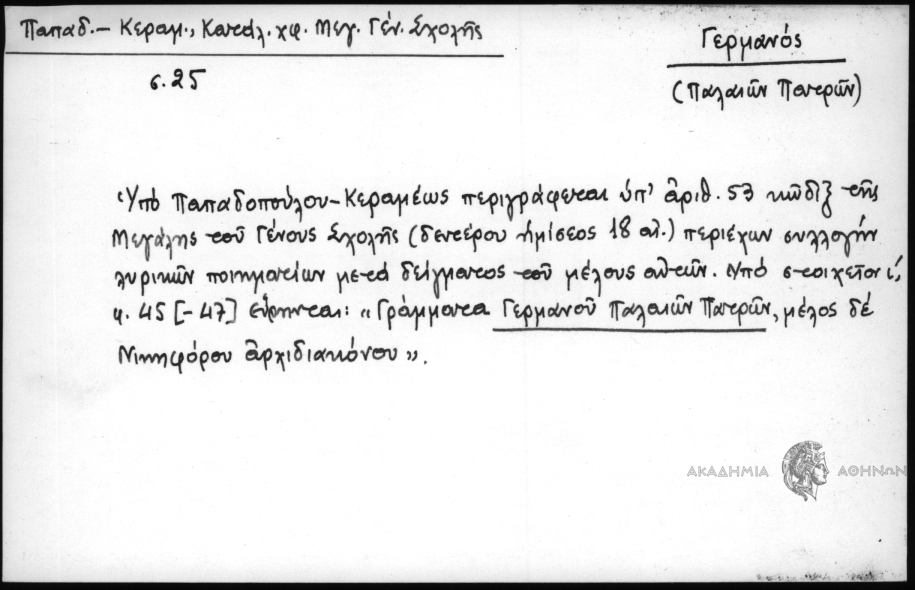 Παπαδ.– Κεραμ., Καταλ. χφ. Μεγ. Γέν. Σχολῆς
σ. 25
Γερμανός
(Παλαιῶν Πατρῶν)
Ὑπό Παπαδοπούλου–Κεραμέως περιγράφεται ὑπ' ἀριθ. 53 κῶδιξ τῆς
Μεγάλης τοῦ Γένους Σχολῆς (δευτέρου ἡμίσεος 18 αἰ.) περιέχων συλλογήν
λυρικῶν ποιηματίων μετά δείγματος τοῦ μέλους αὐτῶν. Ὑπό στοιχεῖον ί,
φ. 45 [– 47] εὕρηνται: «Γράμματα Γερμανοῦ Παλαιῶν Πατρῶν, μέλος δέ
Νικηφόρου ἀρχιδιακόνου».
ΑΚΑΔΗΜΙΑ ΑΘΗΝΩΝ